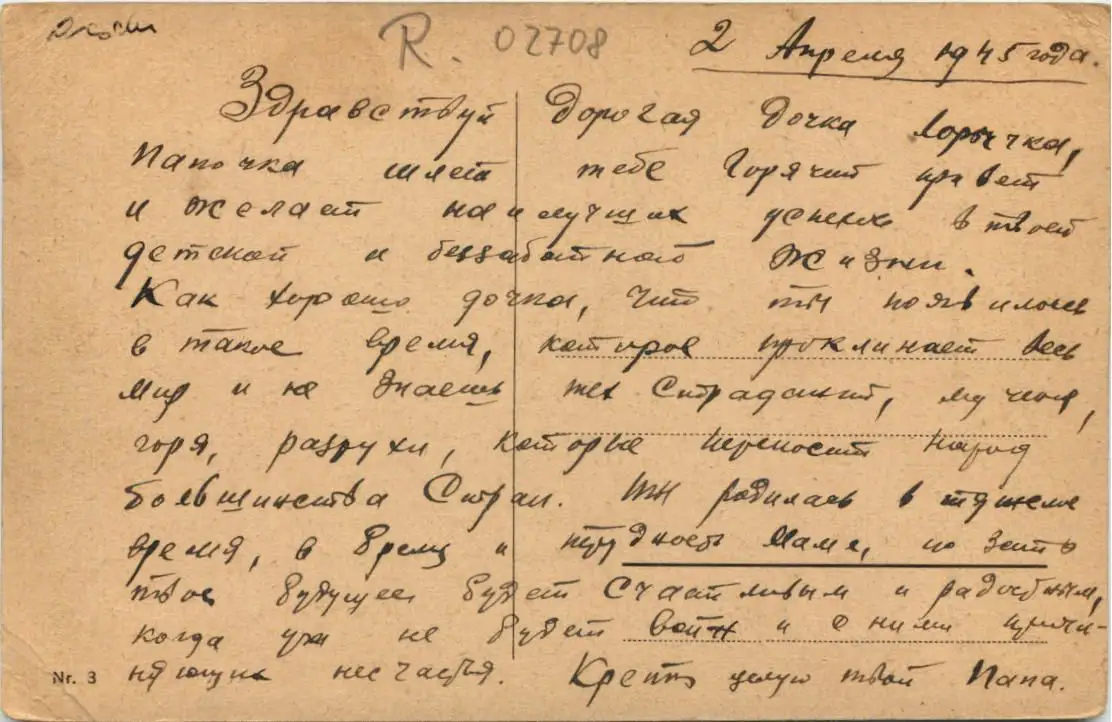 R. 02708
2 Апреля 1945 года.
Здравствуй дорогая дочка Лорочка,
Папочка шлет тебе горячий привет
и желает наилучших успехов в твоей
детской и беззаботной жизни.
Как хорошо дочка, что ты появилась
в такое время, которое проклинает весь
мир и не знаешь тех страданий, мучений,
горя, разрухи, которые переносит народ
большинства стран. Ты родилась в тяжелое
время, в время и трудность маме, но зато
твое будущее будет счастливым и радостным,
когда уж не будет войн и с ними причи-
няющих несчастья. Крепко целую твой Папа.
Nr. 3